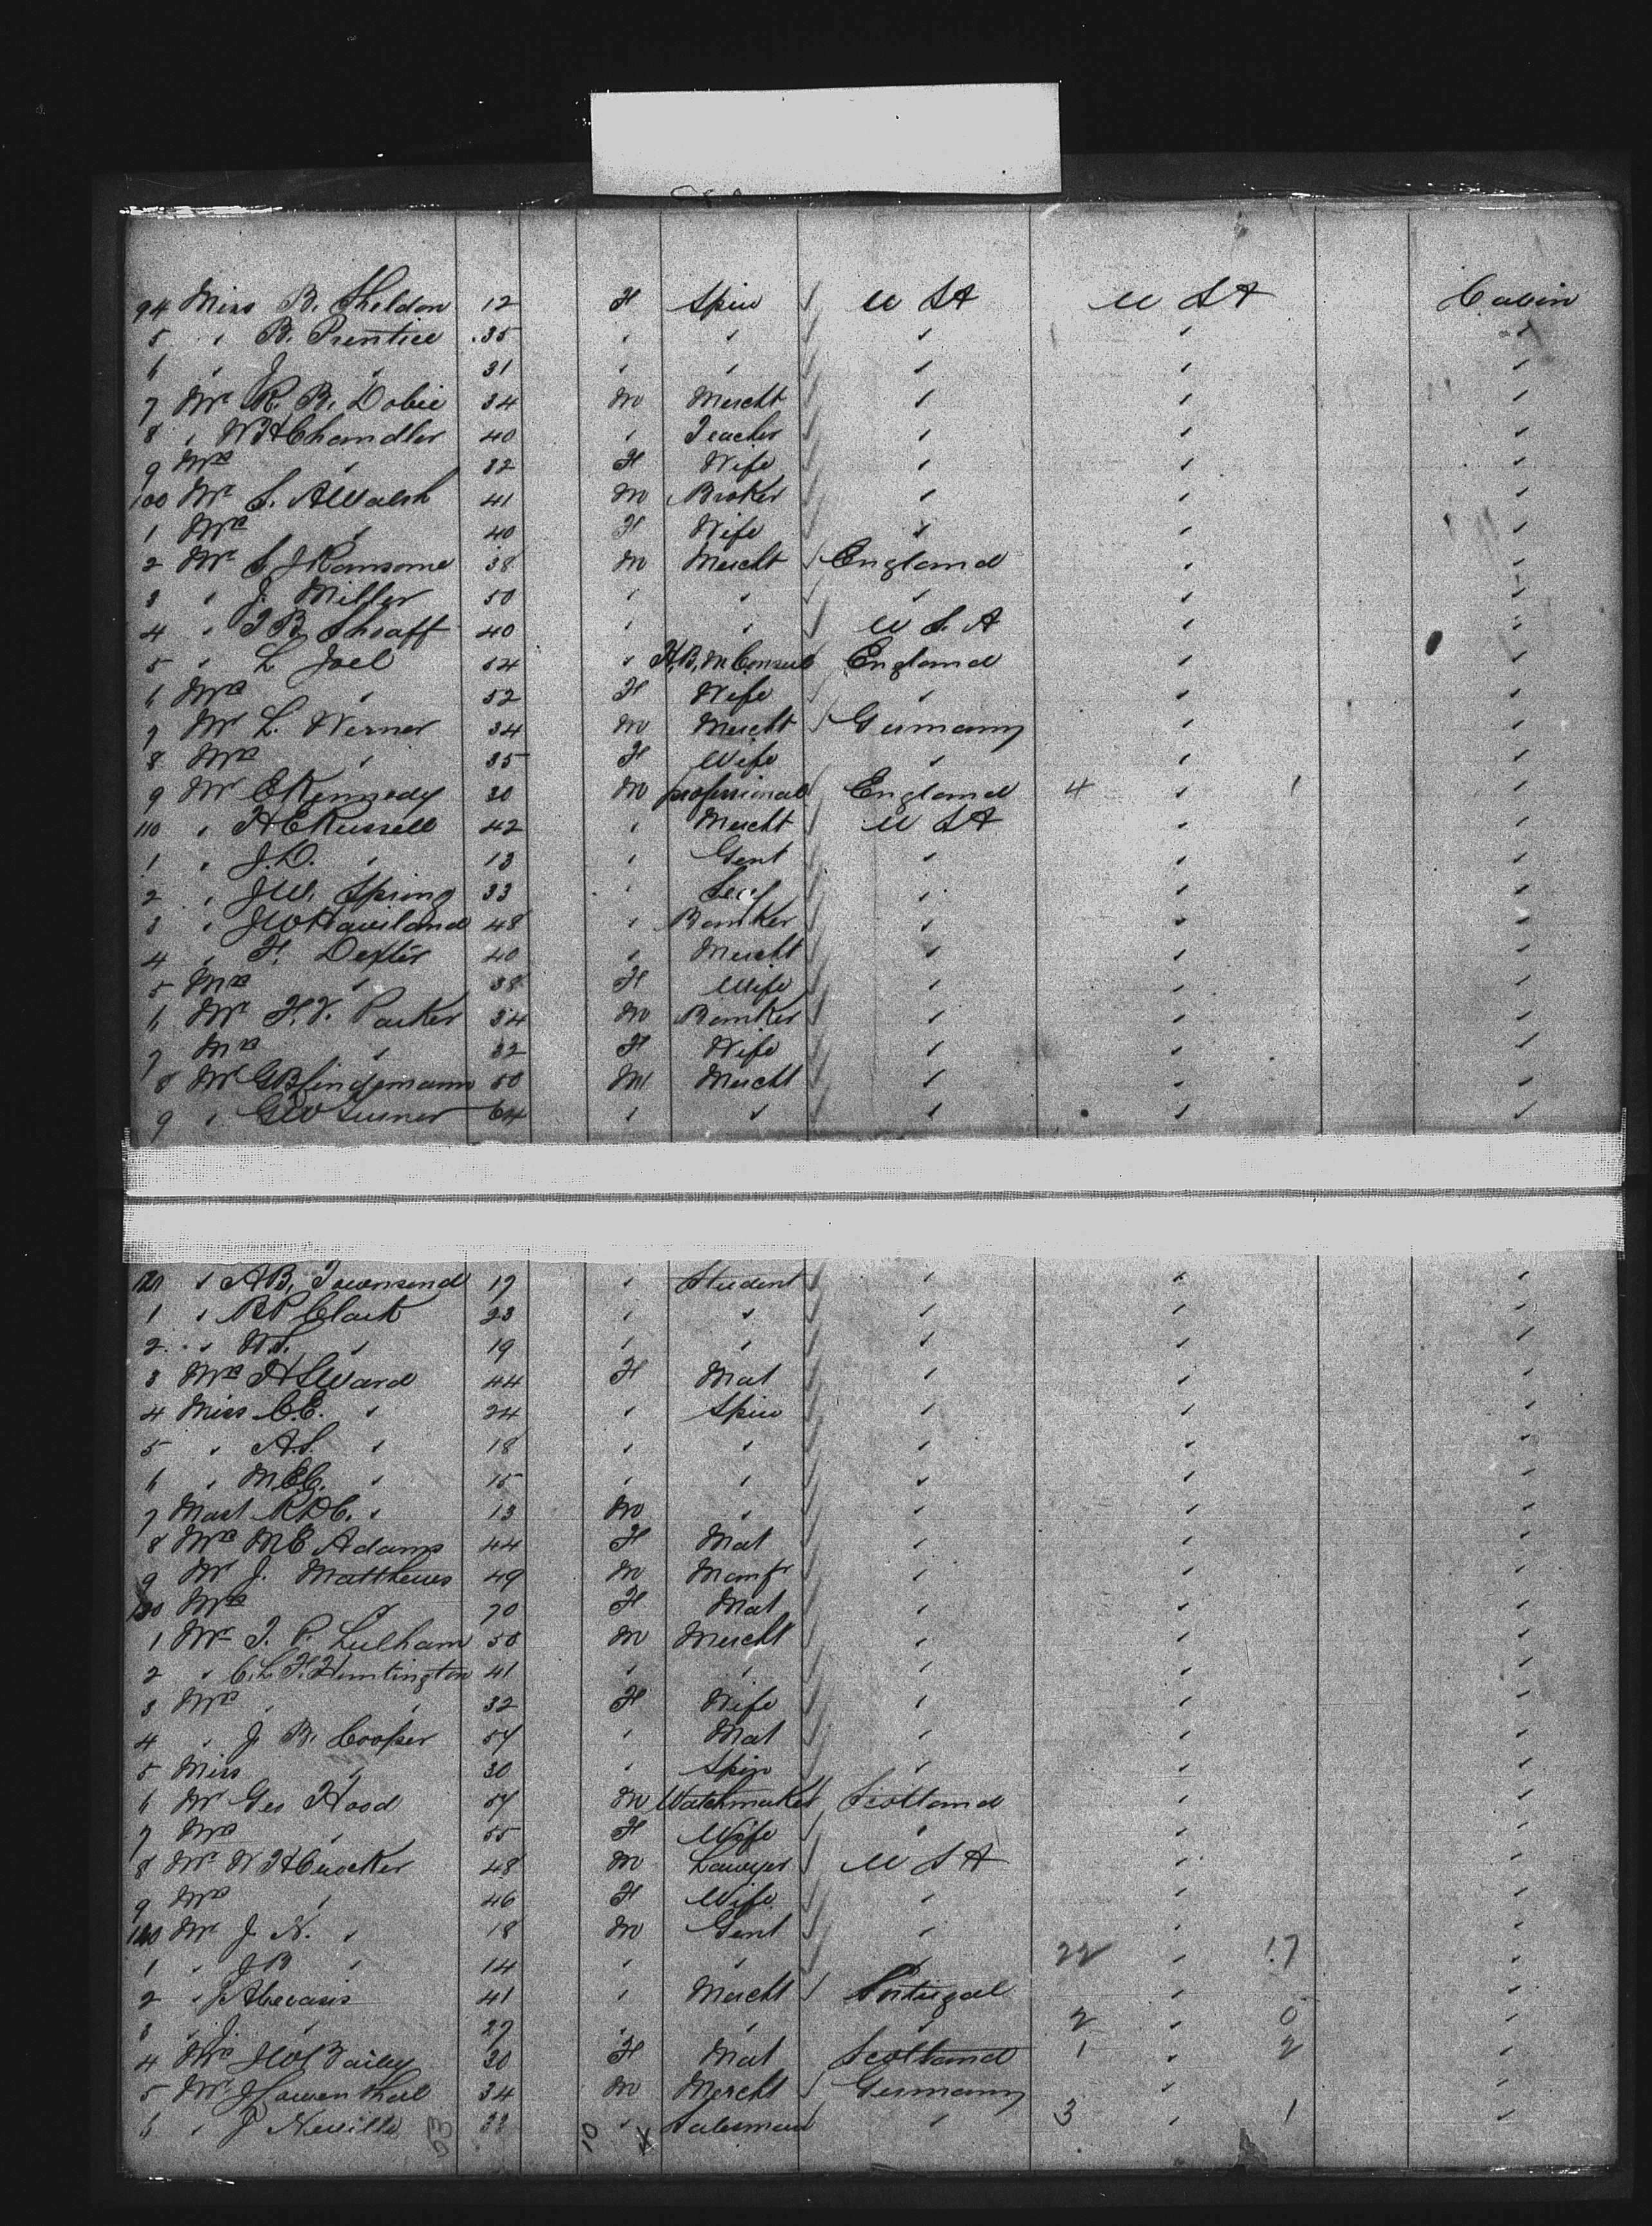 94 Miss B. Sheldon 12 F Spin U S A U S A Cabin
5 " B. Prentice 35 " " " " "
6 " J " 31 " " " " "
7 Mr R. B. Dobie 34 M Mercht " " "
8 " W H Chandler 40 " Teacher " " "
9 Mrs " 32 F Wife " " "
100 Mr S. A Walsh 41 M Broker " " "
1 Mrs " 40 F Wife " " "
2 Mr S J Ransome 38 M Mercht England " "
3 " J. Miller 50 " " " " "
4 " T B Shoaff 40 " " U S. A " "
5 " L Joel 54 " H. B. M Consul England " "
6 Mrs " 52 F Wife " " "
7 Mr L. Werner 34 M Mercht Germany " "
8 Mrs " 35 F Wife " " "
9 Mr E Kennedy 30 M professional England 4 " 1 "
110 " H E Russell 42 " Mercht U S A " "
1 " J. D. " 13 " Gent " " "
2 " J W. Spring 33 " " " "
3 " J W Haviland 48 " Banker " " "
4 " F. Dexter 40 " Mercht " " "
5 Mrs " 38 F Wife " " "
6 Mr F. V. Parker 34 M Banker " " "
7 Mrs " 32 F Wife " " "
8 Mr G B Lindemann 50 M Mercht " " "
9 " G W Turner 64 " " " " "
120 " A B. Townsend 17 " Student " " "
1 " R P Clark 23 " " " " "
2 " W. " 19 " " " " "
3 Mrs H S Ward 44 F Mat " " "
4 Miss C. E. " 24 " Spin " " "
5 " A. S. " 18 " " " " "
6 " M E C. " 15 " " " " "
7 Mast R D C. " 13 M " " " "
8 Mrs M E Adams 44 F Mat " " "
9 Mr J. Matthews 49 M Manfr " " "
130 Mrs " 70 F Mat " " "
1 Mr T. P. Lulham 50 M Mercht " " "
2 " C. L. F. Huntington 41 " " " " "
3 Mrs " 32 F Wife " " "
4 " J. B. Cooper 54 " Mat " " "
5 Miss " 30 " Spin " " "
6 Mr Geo Hood 54 M Watchmaker Scotland " "
7 Mrs " 55 F Wife " " "
8 Mr W H Crocker 48 M Lawyer U S A " "
9 Mrs " 46 F Wife " " "
140 Mr J N. " 18 M Gent " " "
1 " J B " 14 " " " 22 " 17 "
2 " J Abecasis 41 " Mercht Portugal " "
3 " J. " 27 " " " 2 " 0 "
4 Mrs J W Bailey 30 F Mat Scotland 1 " 2 "
5 Mr J Lowenthal 34 M Mercht Germany " "
6 " J Neville 32 " Salesman " 3 " 1 "
53 10